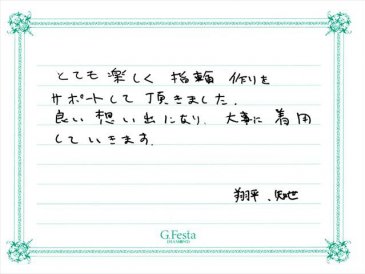 とても楽しく指輪作りを
サポートして頂きました.
良い想い出になり、大事に着用
していきます.
翔平、知世
G.Festa
DIAMOND